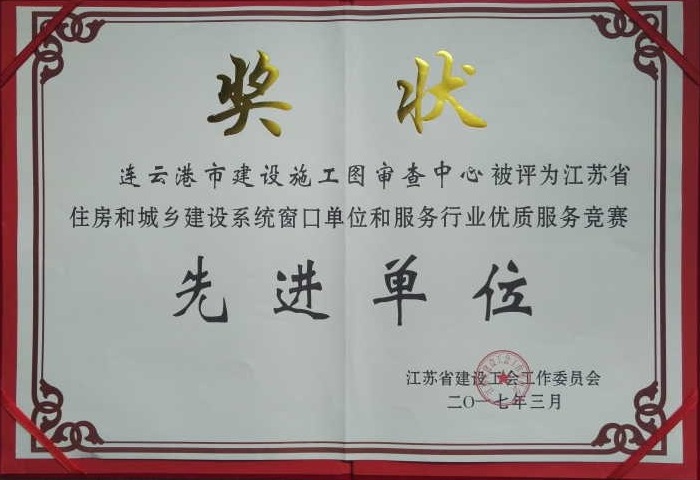 奖状
连云港市建设施工图审查中心被评为江苏省
住房和城乡建设系统窗口单位和服务行业优质服务竞赛
先进单位
江苏省建设工会工作委员会
二〇一七年三月